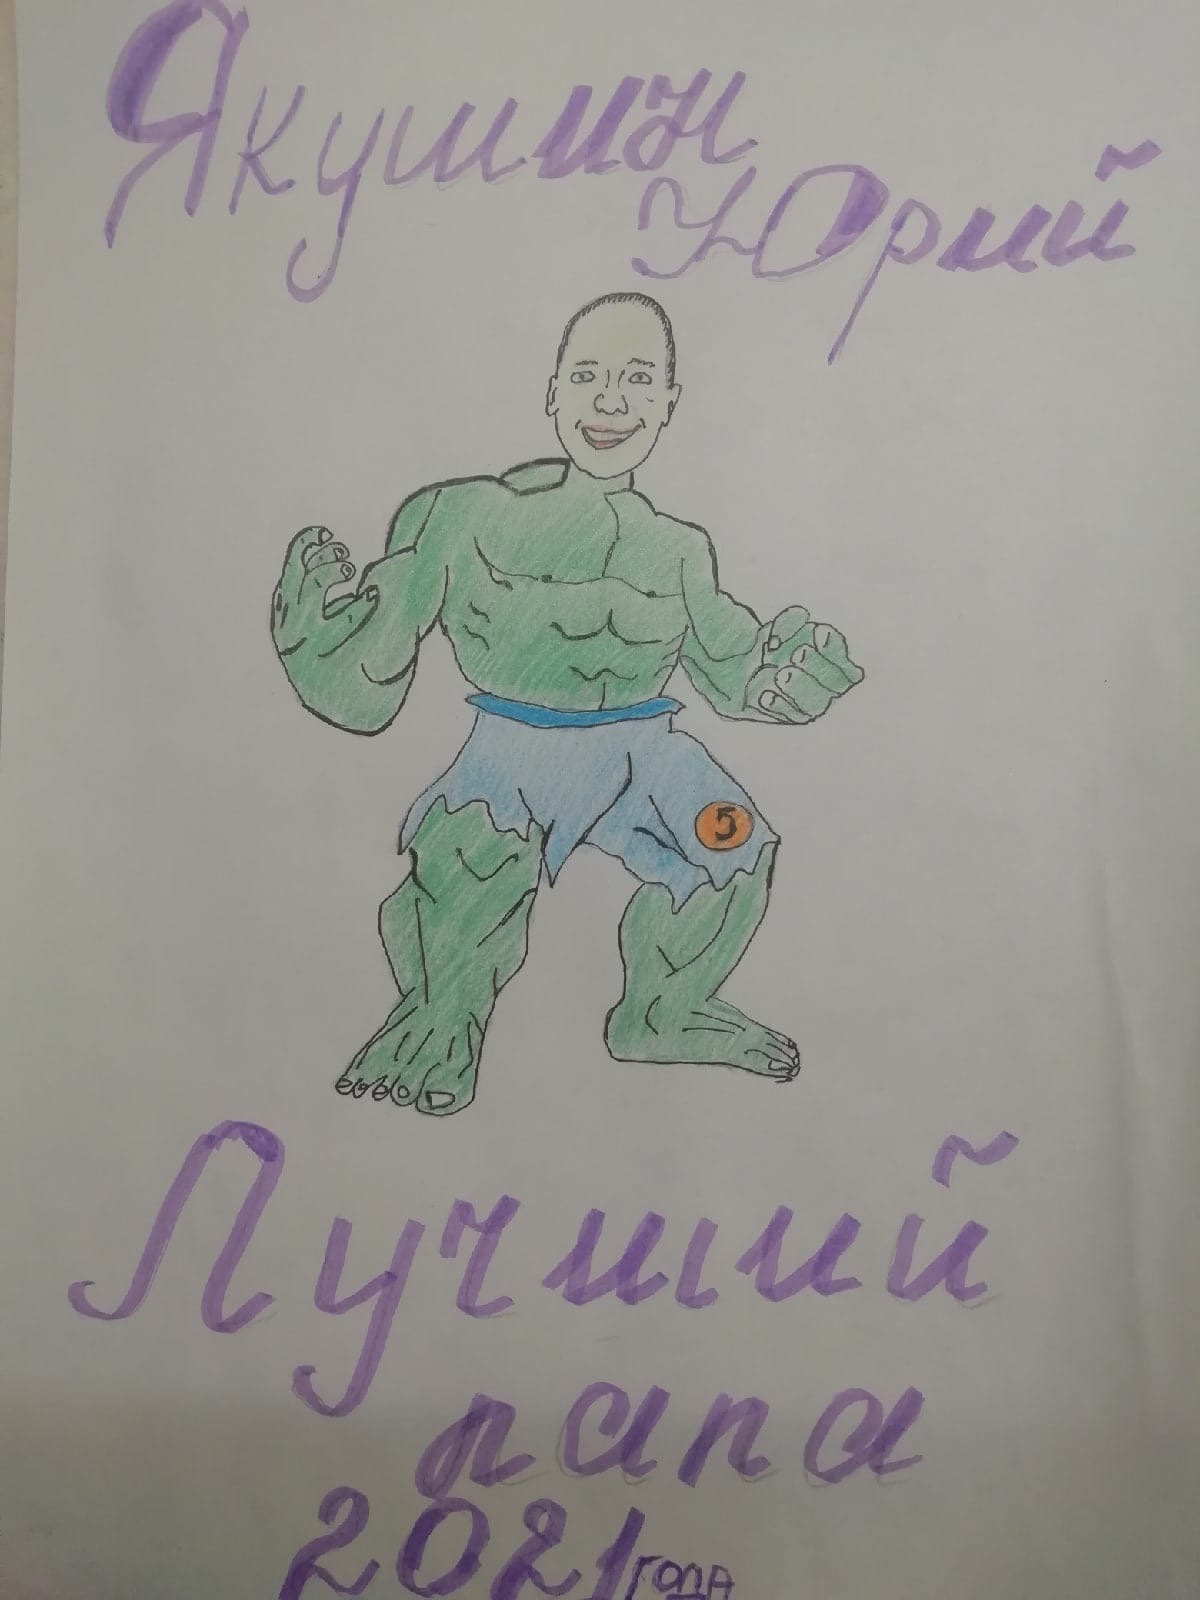 Якушин
Юрий
5
Лучший
папа
2021 года